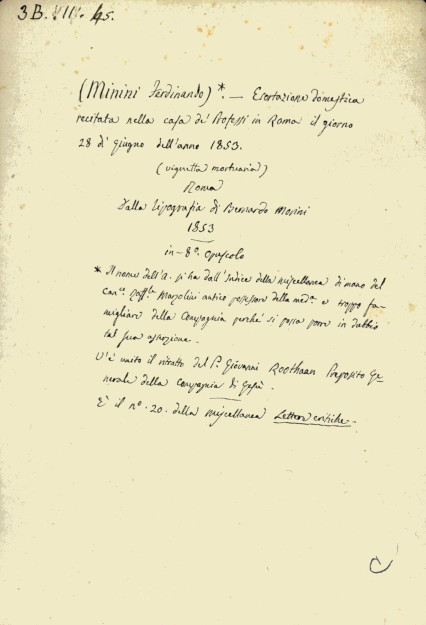 3 B. VII. 45.
(Minini Ferdinando)*. — Esortazione domestica
recitata nella casa de' Professi in Roma il giorno
28 di giugno dell'anno 1853.
(vignetta mortuaria)
Roma
Dalla tipografia di Bernardo Morini
1853
in-8º. Opuscolo
* Il nome dell'A. si ha dall'Indice della miscellanea di mano del
can.co Marzolini antico possessore della med.a e troppo fa-
migliare della Compagnia perché si possa porre in dubbio
tal sua asserzione.
V'è unito il ritratto del P. Giovanni Roothaan Preposito Ge-
nerale della Compagnia di Gesù.
È il nº. 20. della miscellanea Lettere critiche.